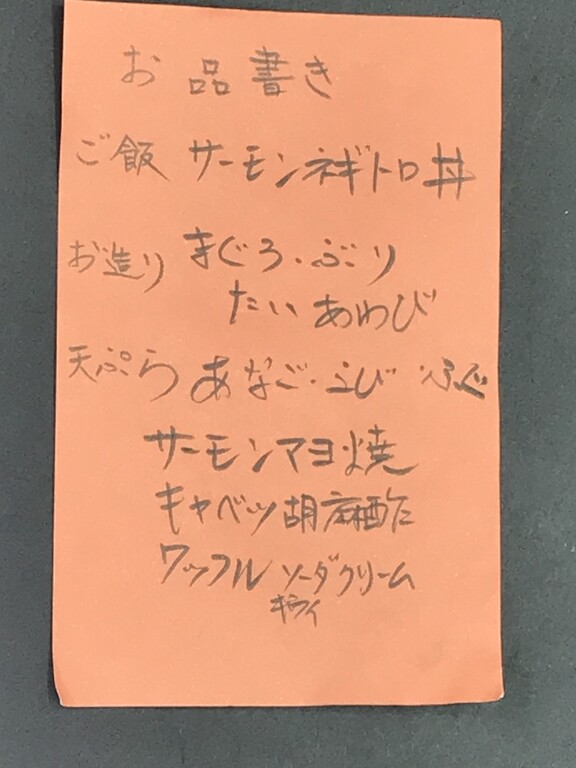 お品書き
ご飯 サーモンネギトロ丼
お造り まぐろ・ぶり
たい あわび
天ぷら あなご・えび ふぐ
サーモンマヨ焼
キャベツ胡麻酢
ワッフル ソーダクリーム